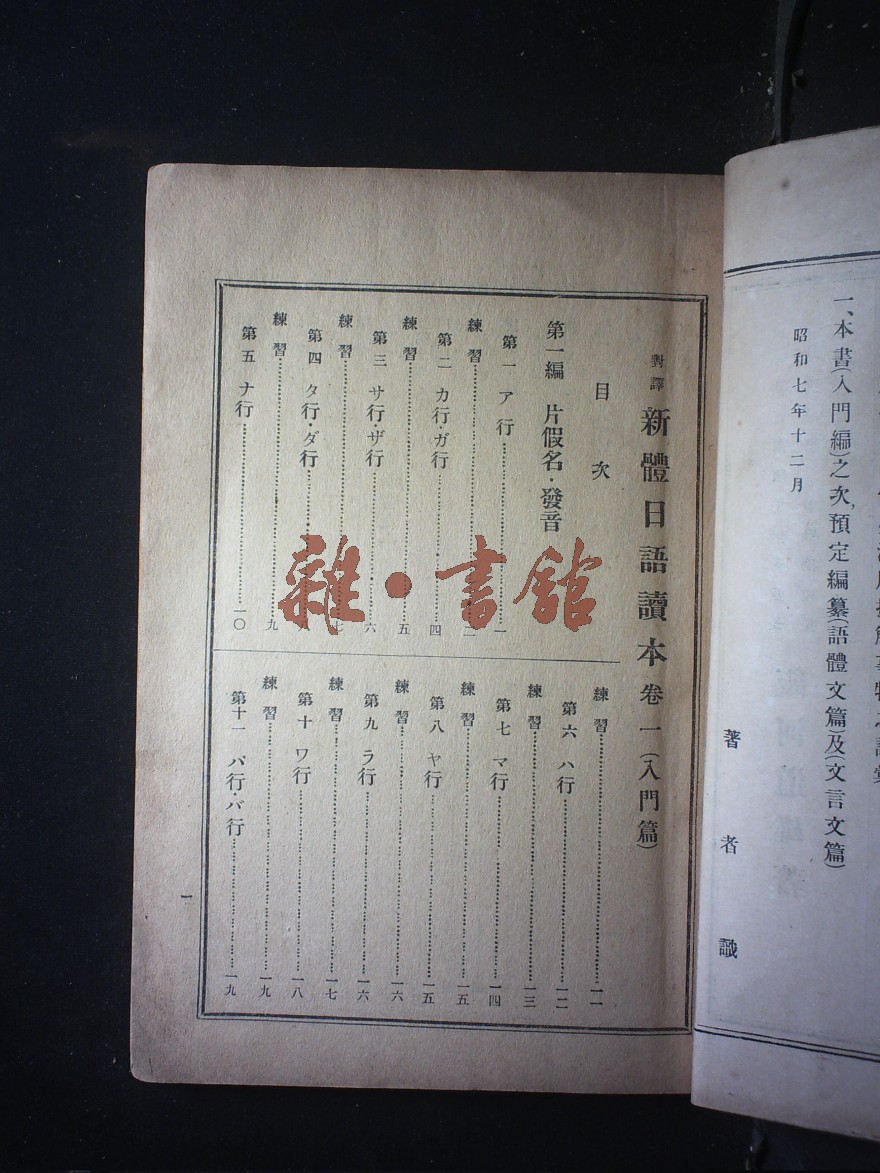 一、本書(入門編)之次、預定編纂(語體文篇)及(文言文篇)
昭和七年十二月
著者識
對譯 新體日語讀本 卷一(入門篇)
目次
第一編 片假名・發音
第一 ア行……一
練習……二
第二 カ行・ガ行……四
練習……五
第三 サ行・ザ行……六
練習……七
第四 タ行・ダ行……
練習……九
第五 ナ行……一〇
練習……一一
第六 ハ行……一二
練習……一三
第七 マ行……一四
練習……一五
第八 ヤ行……一五
練習……一六
第九 ラ行……一六
練習……一七
第十 ワ行……一八
練習……一九
第十一 パ行・バ行……一九
一
雜・書館